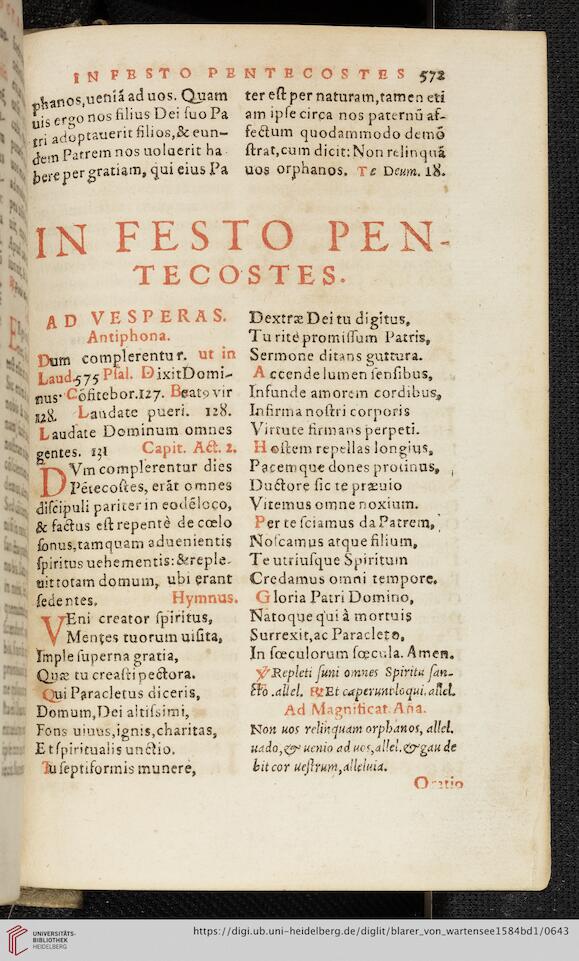 IN FESTO PENTECOSTES 572
phanos,ueniã ad uos. Quam
uis ergo nos filius Dei ſuo Pa
tri adoptauerit filios,& eun-
dem Patrem nos uoluerit ha
bere per gratiam, qui eius Pa
ter eſt per naturam,tamen eti
am ipſe circa nos paternũ af-
fectum quodammodo demõ
ſtrat,cum dicit: Non relinquã
uos orphanos. Te Deum. 18.
IN FESTO PEN-
TECOSTES.
AD VESPERAS.
Antiphona.
Dum complerentur. ut in
Laud.575 Pſal. Dixit Domi-
nus· Cõfitebor.127. Beatꝰ vir
128. Laudate pueri. 128.
Laudate Dominum omnes
gentes. 131 Capit. Act. 2.
DVm complerentur dies
Pẽtecoſtes, erãt omnes
diſcipuli pariter in eodẽ loco,
& factus eſt repentè de cœlo
ſonus,tamquam aduenientis
ſpiritus uehementis: & reple-
uit totam domum, ubi erant
ſedentes. Hymnus.
VEni creator ſpiritus,
Mentes tuorum uiſita,
Imple ſuperna gratia,
Quæ tu creaſti pectora.
Qui Paracletus diceris,
Domum,Dei altiſsimi,
Fons uiuus,ignis,charitas,
Et ſpiritualis unctio.
Tu ſeptiformis munere,
Dextræ Dei tu digitus,
Tu ritè promiſſum Patris,
Sermone ditans guttura.
Accende lumen ſenſibus,
Infunde amorem cordibus,
Infirma noſtri corporis
Virtute firmans perpeti.
Hoſtem repellas longius,
Pacemque dones protinus,
Ductore ſic te præuio
Vitemus omne noxium.
Per te ſciamus da Patrem,
Noſcamus atque filium,
Te utriuſque Spiritum
Credamus omni tempore.
Gloria Patri Domino,
Natoque qui à mortuis
Surrexit,ac Paracleto,
In ſœculorum ſœcula. Amen.
℣ Repleti ſunt omnes Spiritu ſan-
cto .allel. ℟ Et cæperunt loqui.allel.
Ad Magnificat. Aña.
Non uos relinquam orphanos, allel.
uado,& uenio ad uos,allel.& gaude
bit cor ueſtrum,alleluia.
Oratio
UNIVERSITÄTS-
BIBLIOTHEK
HEIDELBERG
https://digi.ub.uni-heidelberg.de/diglit/blarer_von_wartensee1584bd1/0643